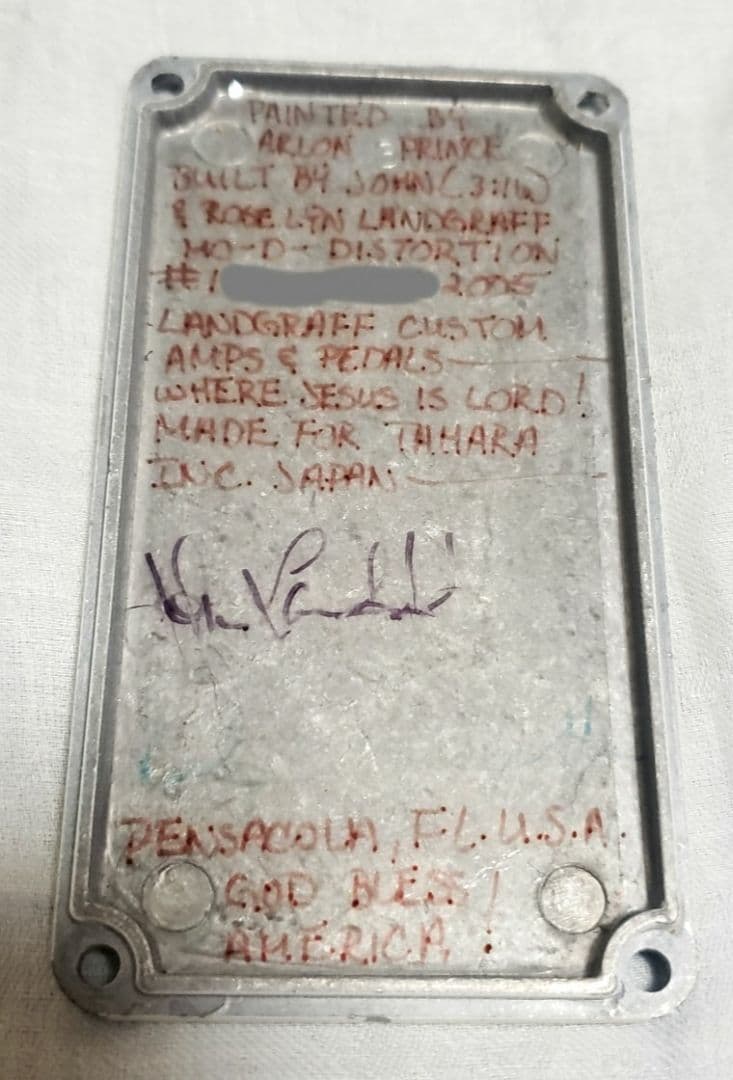 PAINTED BY
ARLON PRINCE
BUILT BY JOHN (3:16)
& ROSE LYN LANDGRAFF
MO-D- DISTORTION
#1 2005
LANDGRAFF CUSTOM
AMPS & PEDALS
WHERE JESUS IS LORD!
MADE FOR TAHARA
INC. JAPAN
PENSACOLA, FL. U.S.A.
GOD BLESS
AMERICA!